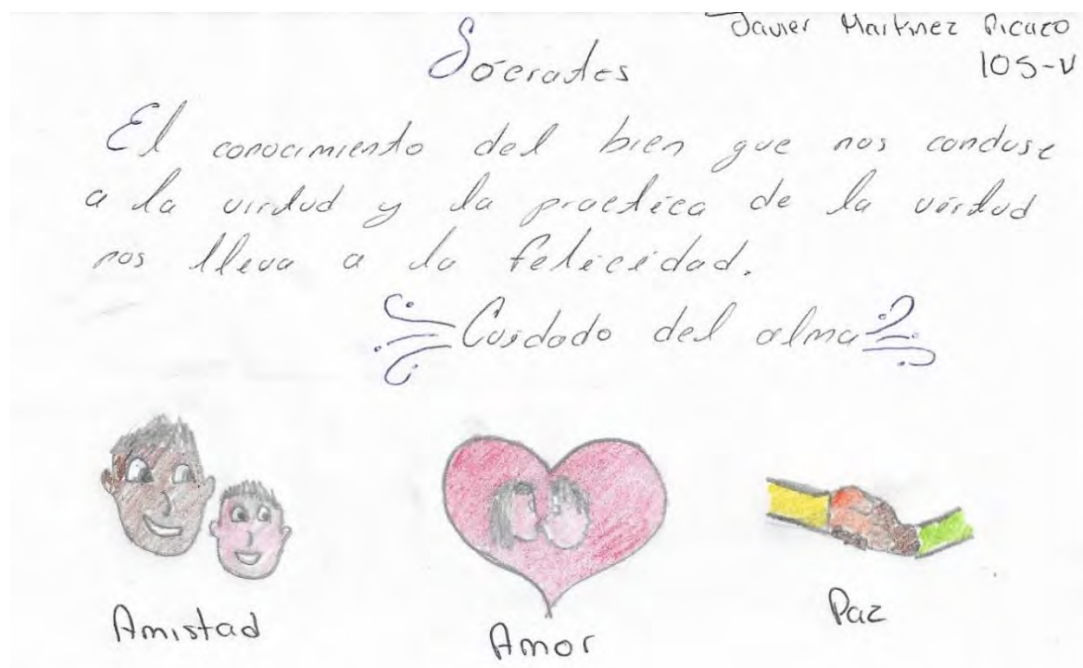 Javier Martinez Picazo
105-V
Sócrates
El conocimiento del bien que nos conduse
a la virtud y la practica de la virtud
nos lleva a la felicidad.
Cuidado del alma
Amistad
Amor
Paz